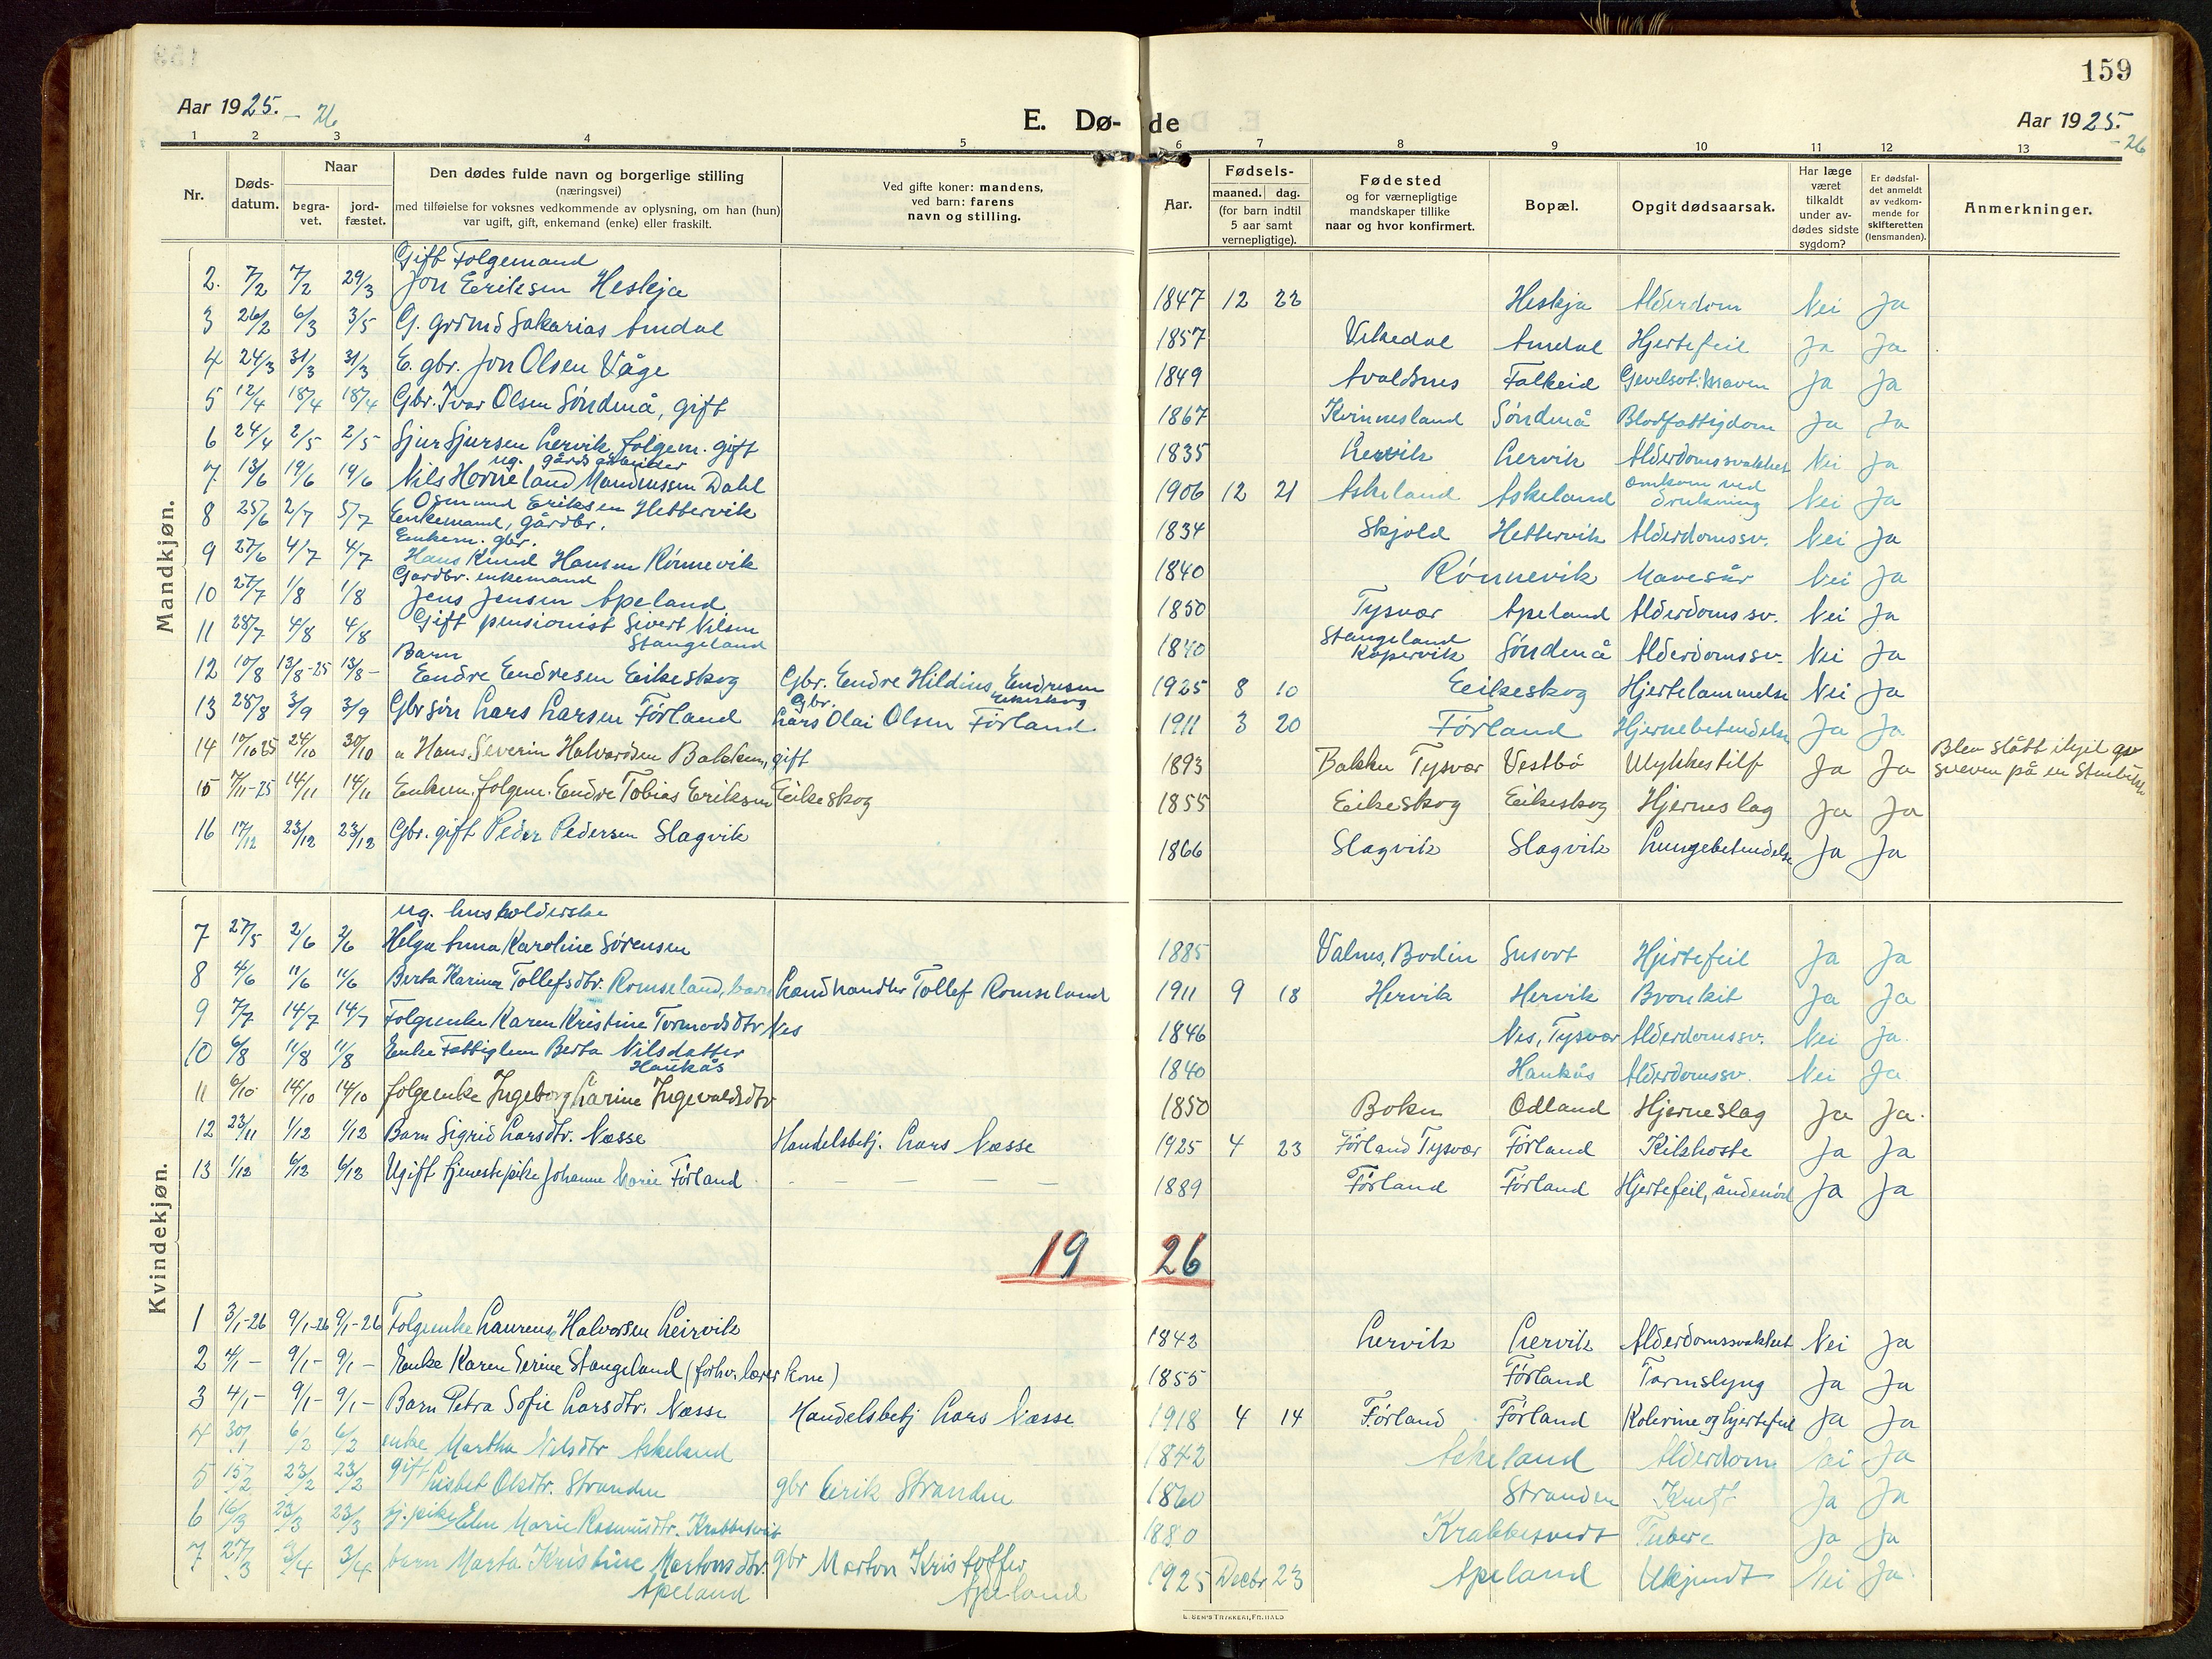 159
Aar 1925. - 26
E. Dø- de
Aar 1925. - 26
1 2 3 4 5 6 7 8 9 10 11 12 13
Nr.
Døds-datum.
Naar
begra-vet.
jord-fæstet.
Den dødes fulde navn og borgerlige stilling
(næringsvei)
med tilføielse for voksnes vedkommende av oplysning, om han (hun)
var ugift, gift, enkemand (enke) eller fraskilt.
Ved gifte koner: mandens,
ved barn: farens
navn og stilling.
Aar.
Fødsels-
maaned. dag.
(for barn indtil
5 aar samt
vernepligtige).
Fødested
og for værnepligtige
mandskaper tillike
naar og hvor konfirmert.
Bopæl.
Opgit dødsaarsak.
Har læge
været
tilkaldt
under av-
dødes sidste
sygdom?
Er dødsfal-
det anmeldt
av vedkom-
mende for
skifteretten
(lensmanden).
Anmerkninger.
Mandkjøn.
Gift Folgemand
2. 7/2 7/2 29/3 Jon Eriksen Heskja 1847 12 22 Heskja Alderdom Nei Ja
3 26/2 6/3 3/5 G. grdmd Sakarias Amdal 1857 Vikedal Amdal Hjertefeil Ja Ja
4 24/3 31/3 31/3 E. gbr. Jon Olsen Våge 1849 Avaldsnes Falkeid Ja Ja
5 12/4 18/4 18/4 Gbr. Ivar Olsen Søndenå, gift 1867 Kvinnesland Søndenå Blodfattigdom Ja Ja
6 24/4 2/5 2/5 Sjur Sjursen Lervik, folgem. gift 1835 Lervik Lervik Alderdomssvakhet Nei Ja
ug. gårdsarbeider
7 13/6 19/6 19/6 Nils Horneland Dahl 1906 12 21 Askeland Askeland omkom ved drukning Nei Ja
Osmund Eriksen Hettervik
8 25/6 2/7 5/7 Enkemand, gårdbr. 1834 Skjold Hettervik Alderdomssv. Nei Ja
Enkem. gbr.
9 27/6 4/7 4/7 Hans Knud Hansen Rønnevik 1840 Rønnevik Mavesår Nei Ja
Gardbr. enkemand
10 27/7 1/8 1/8 Jens Jensen Apeland 1850 Tysvær Apeland Alderdomssv. Nei Ja
11 28/7 4/8 4/8 Gift pensionist Sivert Nilsen Stangeland 1840 Stangeland Kopervik Søndenå Alderdomssv. Nei Ja
Barn
12 10/8 13/8-25 13/8- Endre Endresen Eikeskog Gbr. Endre Hildius Endresen Eikeskog 1925 8 10 Eikeskog Hjertelammelse Nei Ja
13 28/8 3/9 3/9 Gbr søn Lars Larsen Førland Gbr. Lars Olai Olsen Førland 1911 3 20 Førland Hjernebetendelse Ja Ja
14 17/10 25 24/10 30/10 Hans Severin Halvordsen Bakken, gift 1893 Bakken Tysvær Vestbø Ulykkestilf Ja Ja Blev slått ihjel på en
15 7/11-25 14/11 14/11 Enkem. folgem. Endre Tobias Eriksen Eikeskog 1855 Eikeskog Eikeskog Hjerneslag Ja Ja
16 17/12 23/12 23/12 Gbr. gift Peder Pedersen Slagvik 1866 Slagvik Slagvik Lungebetendelse Ja Ja
Kvindekjøn.
ug. husholderske
7 27/5 2/6 2/6 Helga Anna Karoline Sørensen 1885 Valnes, Bodin Susort Hjertefeil Ja Ja
8 4/6 11/6 11/6 Berta Karina Tollefsdtr. Romseland, barn Landhandler Tollef Romseland 1911 9 18 Hervik Hervik Bronkit Ja Ja
9 7/7 14/7 14/7 Folgeenke Karen Kristine Tormodsdtr Nes 1846 Nes, Tysvær Alderdomssv. Nei Ja.
10 6/8 11/8 11/8 Enke Fattiglem Berta Nilsdatter Haukås 1840 Haukås Alderdomssv. Nei Ja
11 6/10 14/10 14/10 folgeenke Ingeborg Karine Ingevaldsdtr 1850 Bokn Odland Hjerneslag Ja Ja.
12 23/11 1/12 1/12 Barn Sigrid Larsdtr. Næsse Handelsbetj. Lars Næsse 1925 4 23 Førland Tysvær Førland Kikhoste Ja Ja
13 1/12 6/12 6/12 Ugift tjenestepike Johanne Marie Førland - - - - 1889 Førland Førland Hjertefeil, åndenød Ja Ja
19 26
1 3/1-26 9/1-26 9/1-26 Folgeenke Laurense Halvorsen Leirvik 1842 Lervik Lervik Alderdomssvakhet Nei Ja
2 4/1- 9/1- 9/1- Enke Karen Serine Stangeland (forhv. lærer kone) 1855 Førland Tarmslyng Ja Ja
3 4/1- 9/1- 9/1- Barn Petra Sofie Larsdtr. Næsse Handelsbetj Lars Næsse 1918 4 14 Førland Førland Kolerine og hjertefeil Ja Ja
4 30/1 6/2 6/2 enke Martha Nilsdtr Askeland 1842 Askeland Alderdom Nei Ja
5 15/2 23/2 23/2 gift Lisbet Olsdtr. Stranden gbr Eirik Stranden 1860 Stranden Kreft Ja Ja
6 16/3 23/3 23/3 tj. pike Elen Marie Rasmusdtr. Krabbetveit 1880 Krabbetvedt Tuberc Ja Ja
7 27/3 3/4 3/4 barn Marta Kristine Martonsdtr. Apeland gbr Morton Kristoffer Apeland 1925 Decbr 23 Apeland Ukjendt Nei Ja
E. SEM'S TRYKKERI, FR.HALD